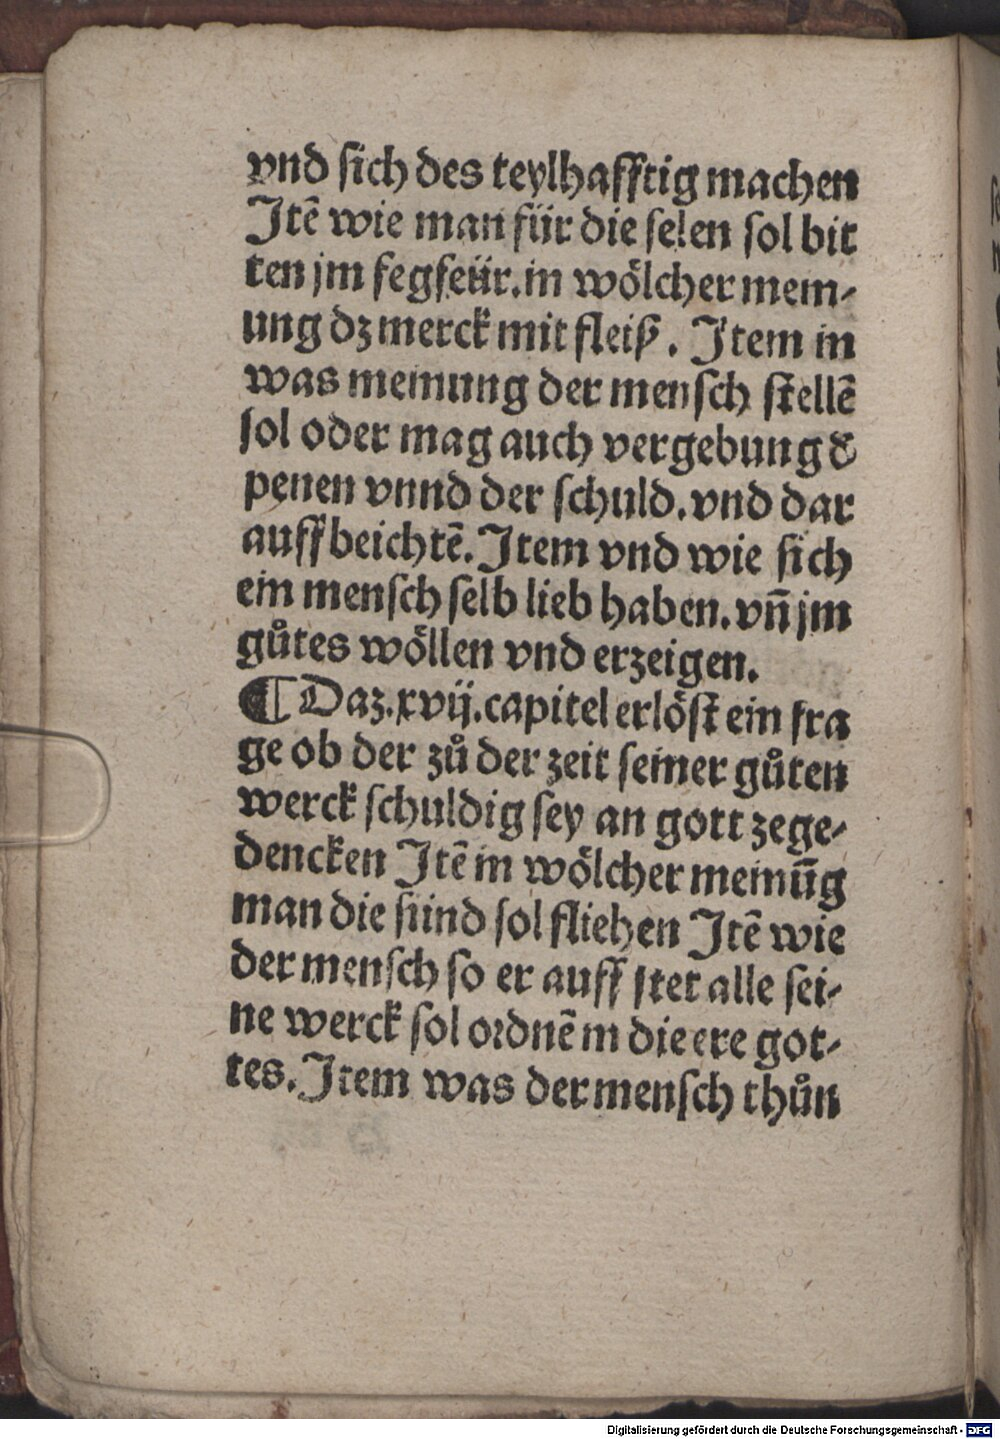 vnd sich des teylhafftig machen
Jtē wie man für die selen sol bit
ten jm fegfeür. in wölcher mein-
ung dz merck mit fleiß. Jtem in
was meinung der mensch stellē
sol oder mag auch vergebung d
penen vnnd der schuld. vnd dar
auff beichtē. Jtem vnd wie sich
ein mensch selb lieb haben. vn̄ jm
gůtes wöllen vnd erzeigen.
¶ Daz. xvij. capitel erlöst ein fra
ge ob der zů der zeit seiner gůten
werck schuldig sey an gott zege-
dencken Jtē in wölcher meinūg
man die sünd sol fliehen Jtē wie
der mensch so er auff stet alle sei-
ne werck sol ordnē in die ere got-
tes. Jtem was der mensch thůn
Digitalisierung gefördert durch die Deutsche Forschungsgemeinschaft - DFG